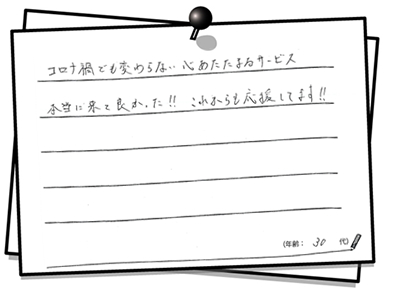 コロナ禍でも変わらない心あたたまるサービス
本当に来て良かった!! これからも応援してます!!
(年齢: 30 代)